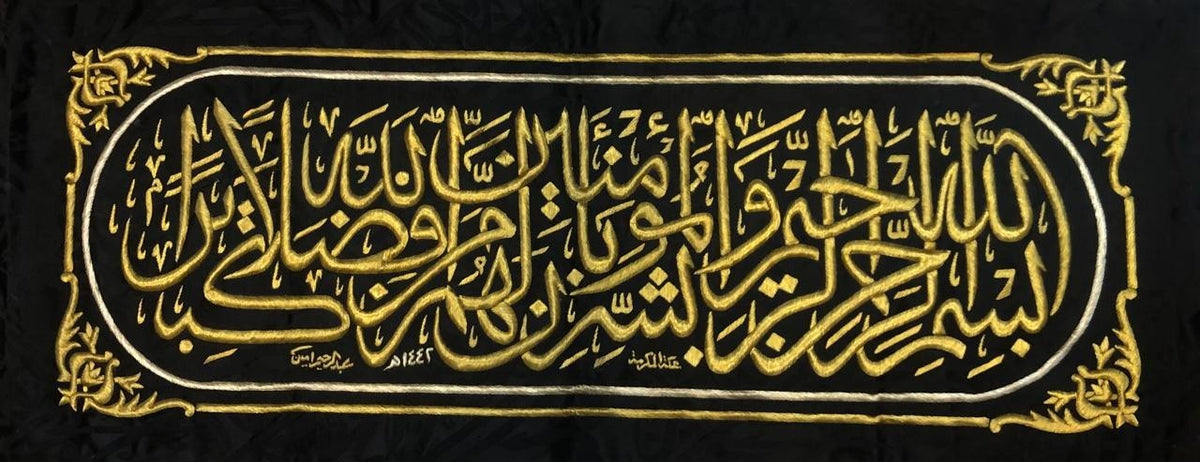 بِسْمِ اللَّهِ الرَّحْمَٰنِ الرَّحِيمِ وَبَشِّرِ الْمُؤْمِنِينَ بِأَنَّ لَهُم مِّنَ اللَّهِ فَضْلًا كَبِيرًا
مكة المكرمة ١٤٤٢هـ عبدالرحيم امين